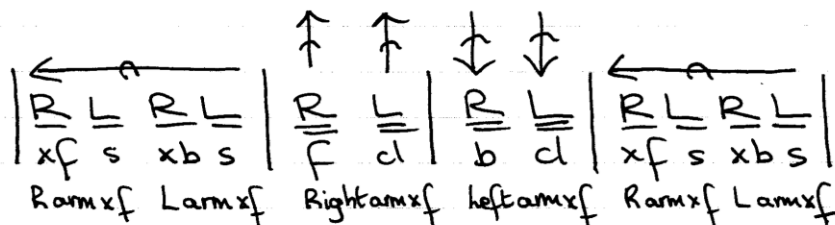 R L R L R L R L R L R L
xf s xb s f cl b cl xf s xb s
R arm xf L arm xf Right arm xf Left arm xf R arm xf L arm xf